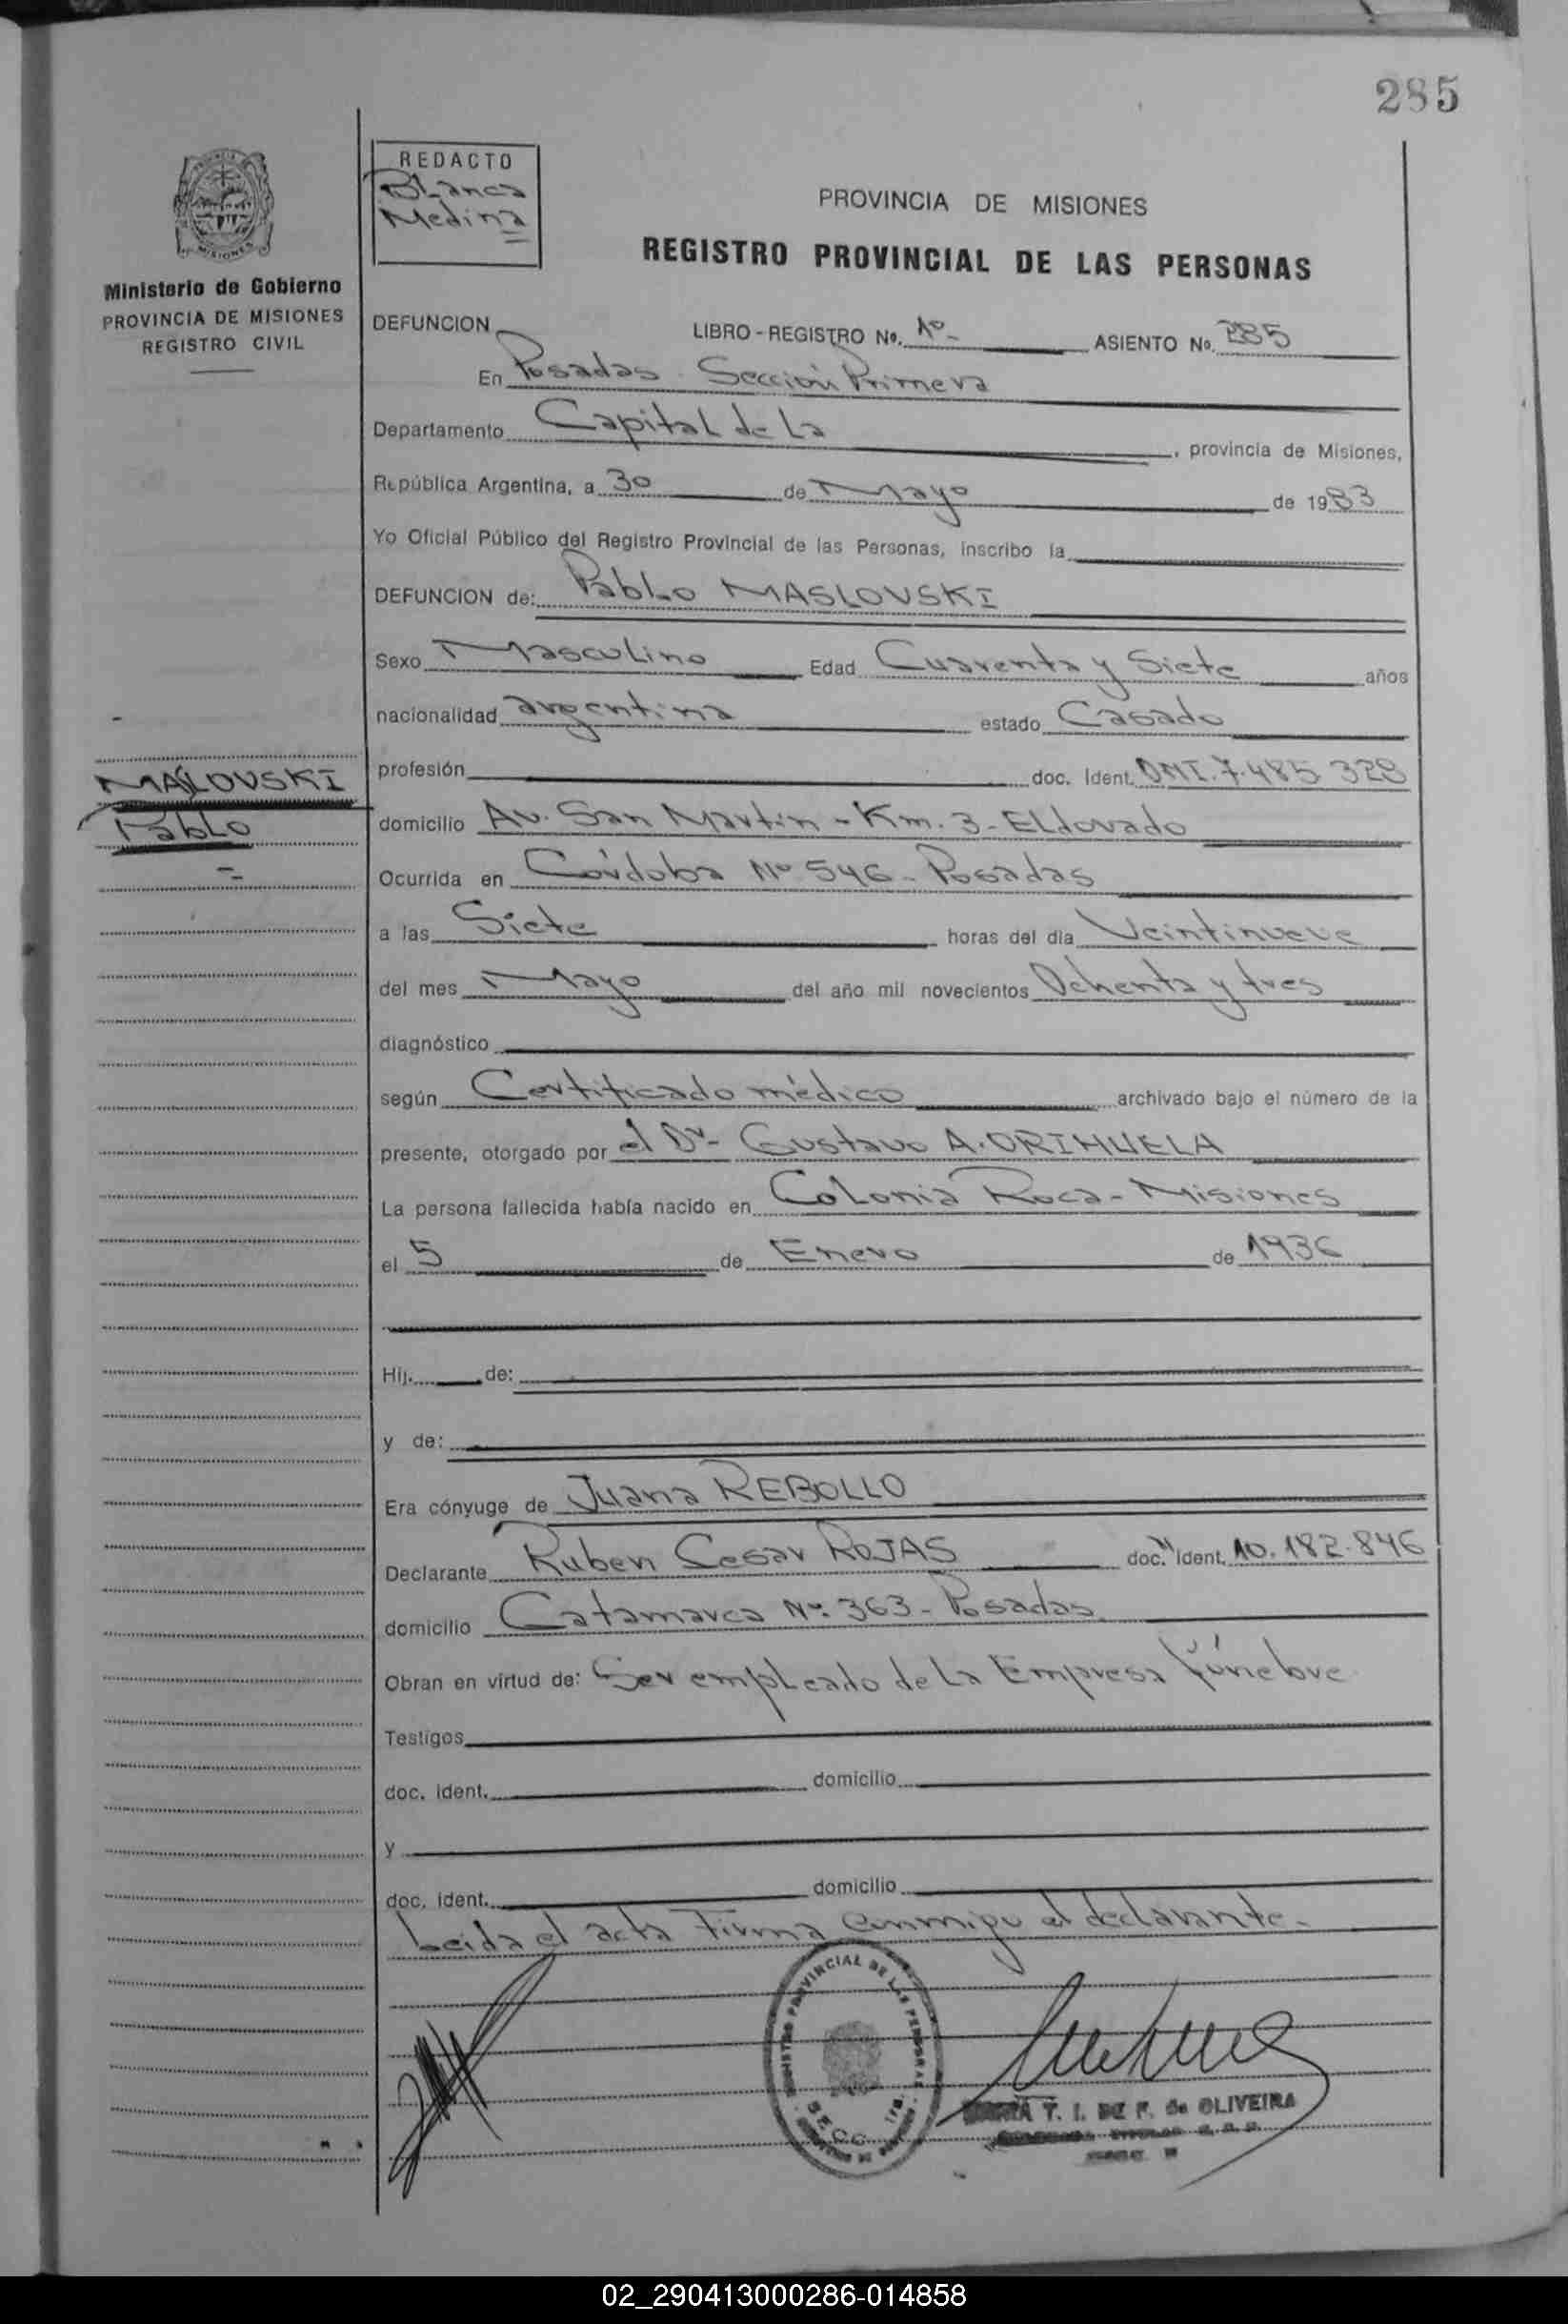 285
REDACTO
Blanca
Medina
PROVINCIA DE MISIONES
REGISTRO PROVINCIAL DE LAS PERSONAS
MISIONES
Ministerio de Gobierno
PROVINCIA DE MISIONES
REGISTRO CIVIL
DEFUNCION LIBRO - REGISTRO No. 1º- ASIENTO No. 285
En Posadas Sección Primera
Departamento Capital de La , provincia de Misiones,
República Argentina, a 30 de Mayo de 1983
Yo Oficial Público del Registro Provincial de las Personas, inscribo la
DEFUNCION de: Pablo MASLOVSKI
Sexo Masculino Edad Cuarenta y Siete años
nacionalidad argentina estado Casado
MASLOVSKI
Pablo
profesión doc. Ident. DNI. 7.485.328
domicilio Av. San Martin - Km. 3 - ELdorado
Ocurrida en Córdoba Nº 546 - Posadas
a las Siete horas del día Veintinueve
del mes Mayo del año mil novecientos Ochenta y tres
diagnóstico
según Certificado médico archivado bajo el número de la
presente, otorgado por el Dr. Gustavo A. ORIHUELA
La persona fallecida había nacido en Colonia Roca - Misiones
el 5 de Enero de 1936
Hij. de:
y de:
Era cónyuge de Juana REBOLLO
Declarante Ruben Cesar ROJAS doc. Ident. 10.182.846
domicilio Catamarca Nº 363 - Posadas.
Obran en virtud de: Ser empleado de La Empresa fúnebre
Testigos
doc. ident. domicilio
y
doc. ident. domicilio
Leida el acta Firma conmigo el declarante.-
REGISTRO PROVINCIAL DE LAS PERSONAS
SECC. 1ra.
T. I. DE F. de OLIVEIRA
02_290413000286-014858